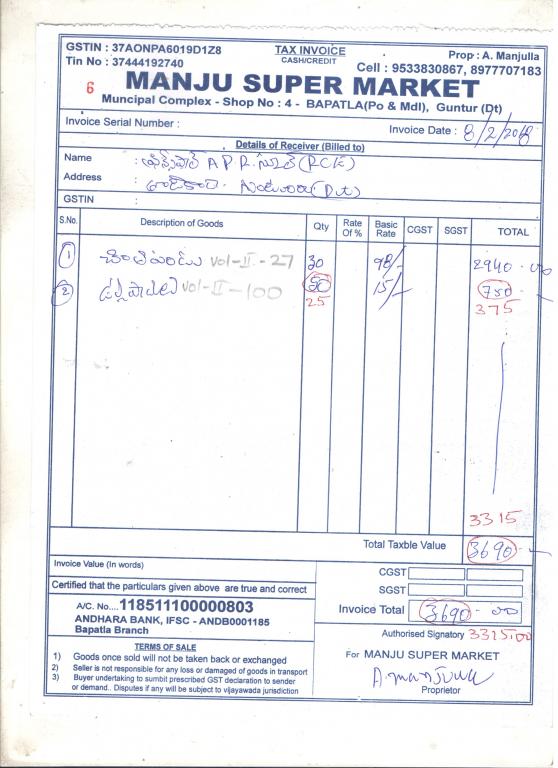 GSTIN : 37AONPA6019D1Z8 TAX INVOICE Prop : A. Manjulla
Tin No : 37444192740 CASH/CREDIT Cell : 9533830867, 8977707183
6 MANJU SUPER MARKET
Muncipal Complex - Shop No : 4 - BAPATLA(Po & Mdl), Guntur (Dt)
Invoice Serial Number : Invoice Date : 8/2/2018
Details of Receiver (Billed to)
Name : A P R (RCE)
Address :
GSTIN :
S.No. Description of Goods Qty Rate Of % Basic Rate CGST SGST TOTAL
1 చింతపండు Vol-II-27 30 98/- 2940.00
2 Vol-II-100 50 15/- 750
25 375
3315
Total Taxble Value 3690
Invoice Value (In words)
CGST
SGST
Certified that the particulars given above are true and correct
A/C. No.... 118511100000803
Invoice Total 3690-00
ANDHARA BANK, IFSC - ANDB0001185
Bapatla Branch
Authorised Signatory 3315.00
TERMS OF SALE
For MANJU SUPER MARKET
1) Goods once sold will not be taken back or exchanged
2) Seller is not responsible for any loss or damaged of goods in transport
3) Buyer undertaking to sumbit prescribed GST declaration to sender
or demand.. Disputes if any will be subject to vijayawada jurisdiction
A. Manjula
Proprietor